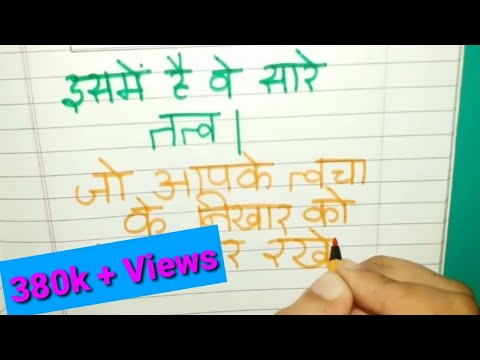 इसमें है वे सारे
तत्व।
जो आपके त्वचा
के निखार को
रखे
380k + Views